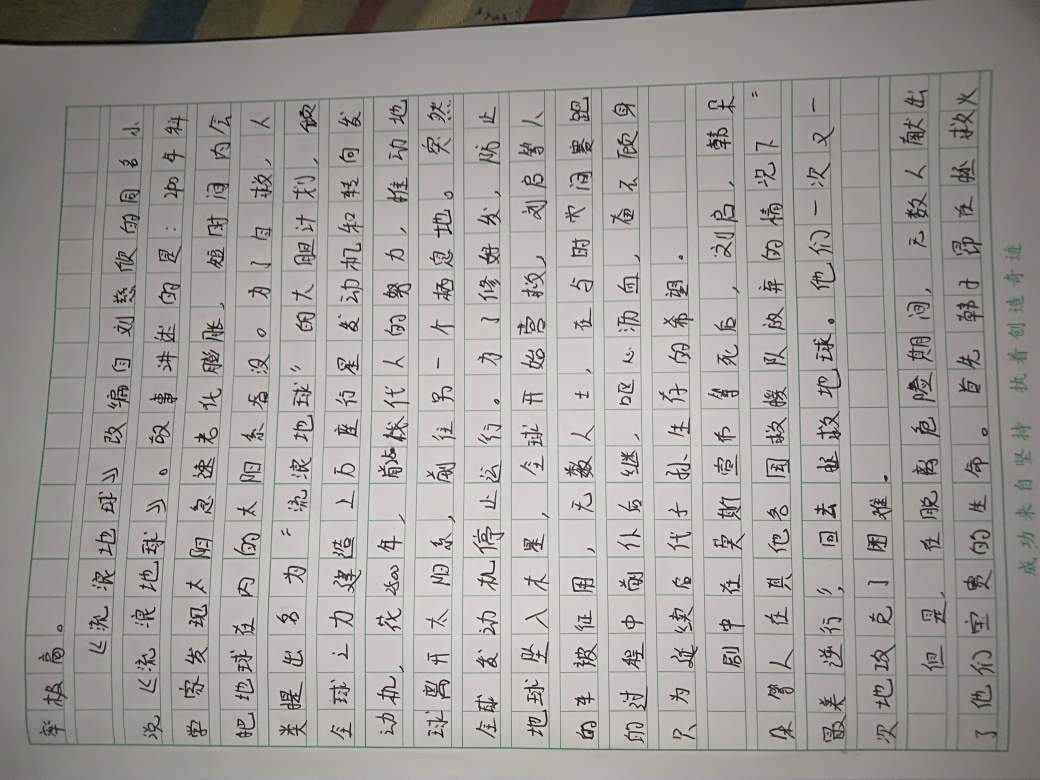 率极高。
《流浪地球》改编自刘慈欣的同名小
说《流浪地球》。故事讲述的是：2075年科
学家发现太阳急速老化膨胀，短时间内会
把地球在内的太阳系吞没。为了自救，人
类提出名为“流浪地球”的大胆计划，倾
全球之力建造上万座行星发动机和转向发
动机，花2500年，前赴代人的努力，推动地
球离开太阳系，前往另一个栖息地。突然
全球发动机停止运行。为了修好发，防止
地球坠入木星，全球开始营救，刘启等人
的车被征用，无数人士，在与时间赛跑
的过程中前仆后继，呕心沥血，奋不顾身
只为延续后代子孙生存的希望。
剧中在莫斯宣布等死后，刘启，韩朵
朵等人在其他各国救援队放弃的情况下“
最美逆行”，回去拯救地球。他们一次又一
次地攻克了困难。
但是，在脱离危险期间，无数人献出
了他们宝贵的生命。首先韩子昂在拯救火
成功来自坚持 执着创造奇迹